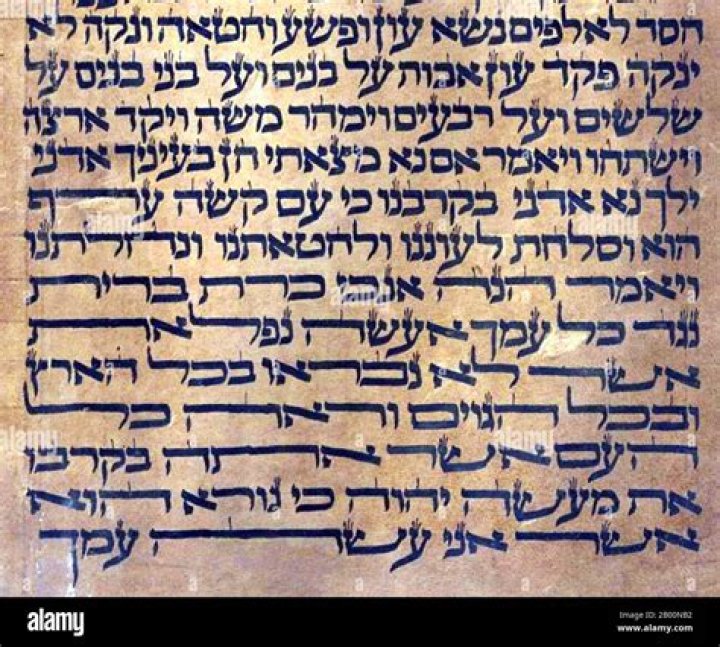 חסד לאלפים נשא עון ופשע וחטאה ונקה לא
ינקה פקד עון אבות על בנים ועל בני בנים על
שלשים ועל רבעים וימהר משה ויקד ארצה
וישתחו ויאמר אם נא מצאתי חן בעיניך אדני
ילך נא אדני בקרבנו כי עם קשה ערף
הוא וסלחת לעוננו ולחטאתנו ונחלתנו
ויאמר הנה אנכי כרת ברית
נגד כל עמך אעשה נפלאת
אשר לא נבראו בכל הארץ
ובכל הגוים וראה כל
העם אשר אתה בקרבו
את מעשה יהוה כי נורא הוא
אשר אני עשה עמך
alamy
Image ID: 2B00NB2
www.alamy.com